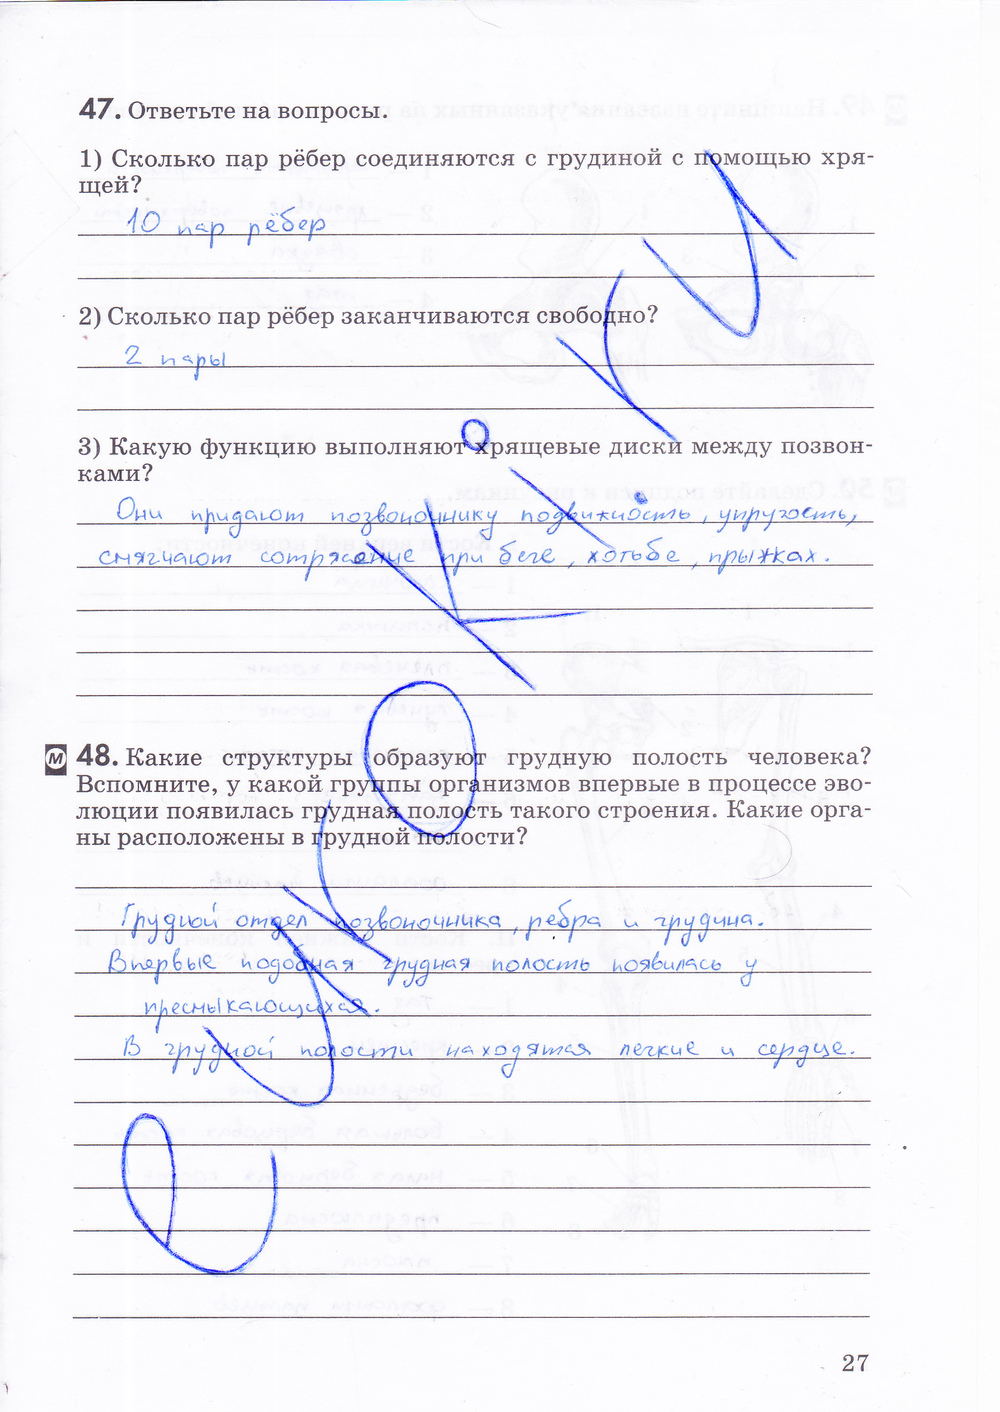 47. Ответьте на вопросы.
1) Сколько пар рёбер соединяются с грудиной с помощью хря-
щей?
10 пар рёбер
2) Сколько пар рёбер заканчиваются свободно?
2 пары
3) Какую функцию выполняют хрящевые диски между позвон-
ками?
Они придают позвоночнику подвижность, упругость,
смягчают сотрясение при беге, хотьбе, прыжках.
М 48. Какие структуры образуют грудную полость человека?
Вспомните, у какой группы организмов впервые в процессе эво-
люции появилась грудная полость такого строения. Какие орга-
ны расположены в грудной полости?
Грудной отдел позвоночника, ребра и грудина.
Впервые подобная грудная полость появилась у
пресмыкающихся.
В грудной полости находятся легкие и сердце.
27